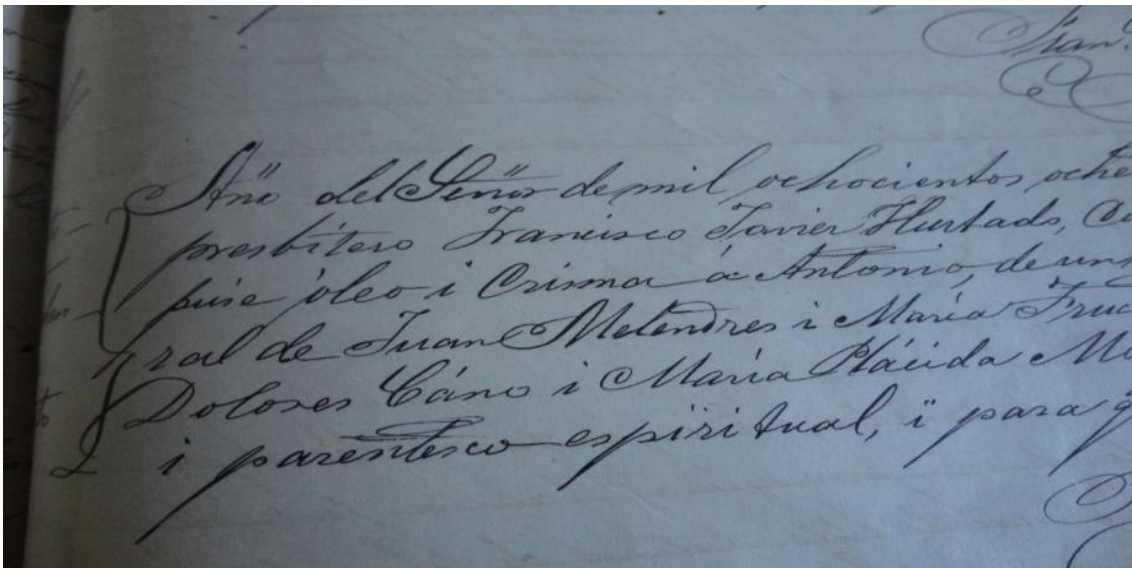 Fran.
Año del Señor de mil ochocientos oche
presbítero Francisco Javier Hurtado, Cu
puse óleo i Crisma á Antonio, de un
ral de Juan Melendres i María Fruc
Dolores Cano i María Plácida Me
i parentesco espiritual, i para q